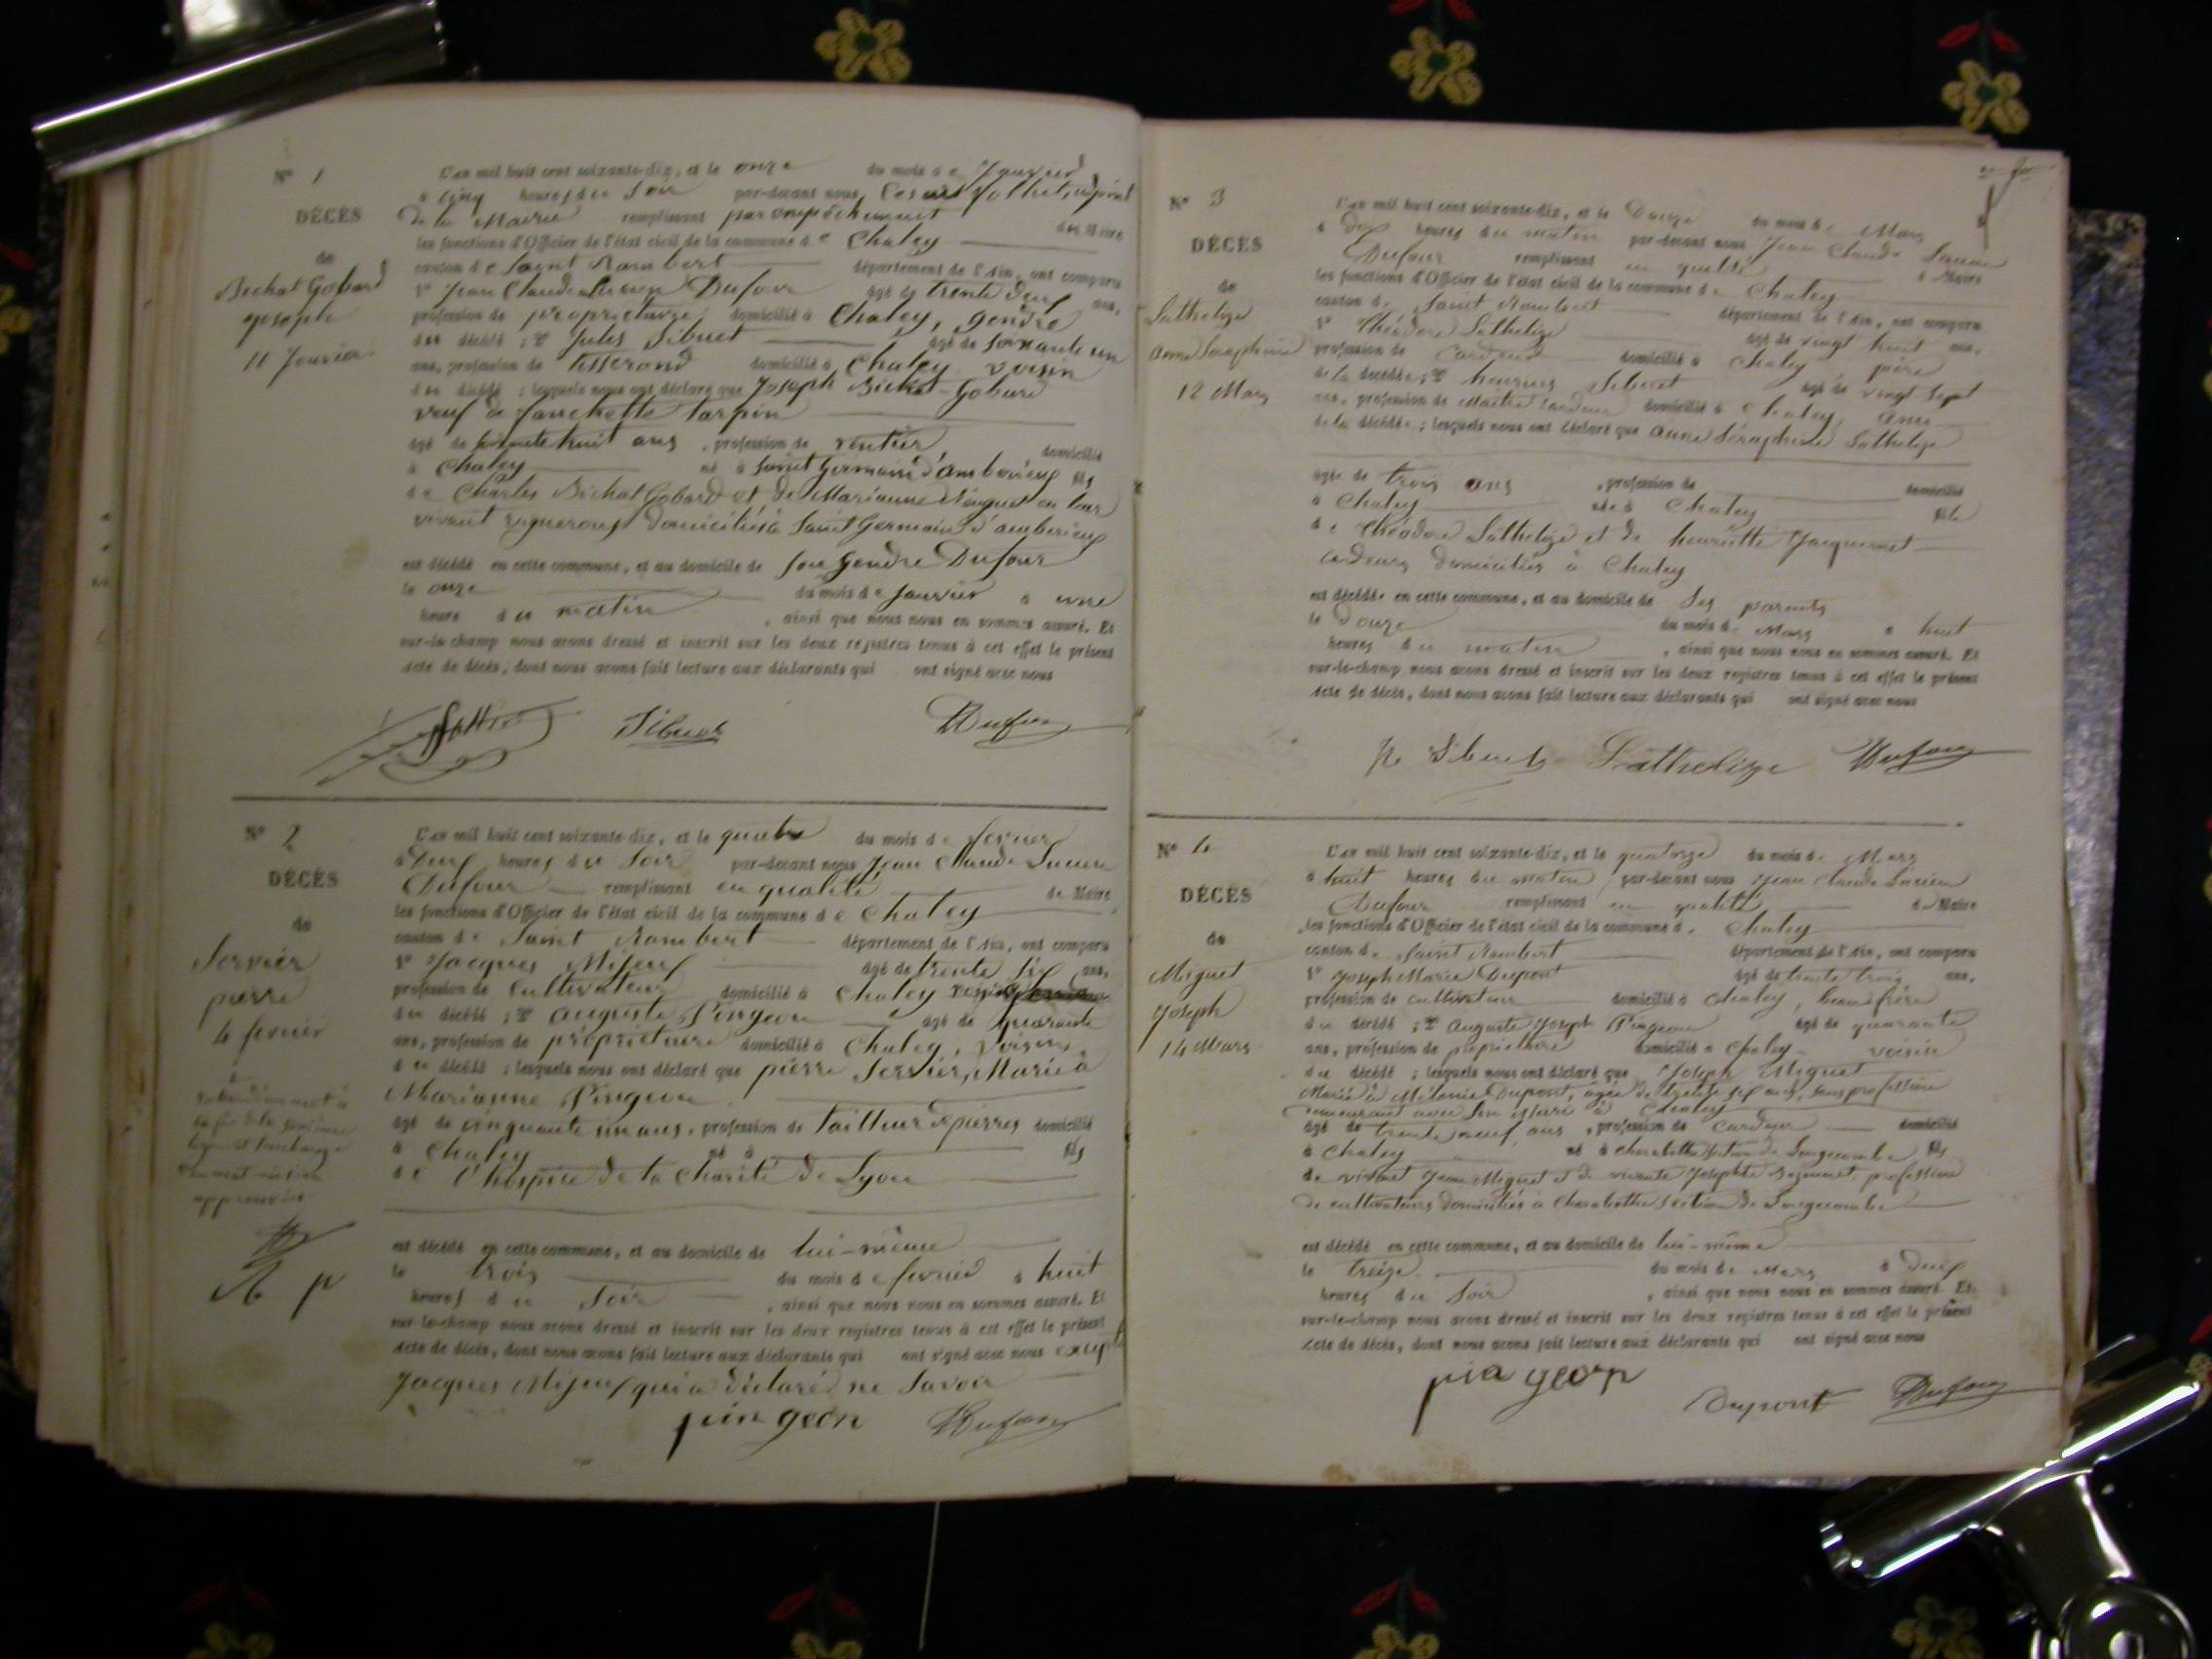 N° 1
DÉCÈS
de
Bichat Gobard
Joseph
11 Janvier
L'an mil huit cent soixante-dix, et le onze du mois de Janvier
à cinq heures du soir par-devant nous,
de la Mairie remplissant par empêchement du Maire
les fonctions d'Officier de l'état civil de la commune de Chaley
canton de Saint Rambert département de l'Ain, ont comparu
1° Jean Claude Lucien Dufour âgé de trente neuf ans,
profession de propriétaire domicilié à Chaley, gendre
du décédé ; 2° Jules Sibuet âgé de soixante un
ans, profession de tisserand domicilié à Chaley voisin
du décédé ; lesquels nous ont déclaré que Joseph Bichat-Gobard
veuf de Fanchette Tarpin
âgé de huit ans, profession de rentier domicilié
à Chaley né à Saint Germain d'amberieux fils
de Charles Bichat Gobard et de Marianne en leur
vivant vignerons domiciliés à Saint Germain d'amberieux
est décédé en cette commune, et au domicile de son gendre Dufour
le onze du mois de Janvier à une
heure du matin, ainsi que nous nous en sommes assuré. Et
sur-le-champ nous avons dressé et inscrit sur les deux registres tenus à cet effet le présent
acte de décès, dont nous avons fait lecture aux déclarants qui ont signé avec nous
Sibuet Dufour
N° 2
DÉCÈS
de
Servier
pierre
4 fevrier
approuvés
p
L'an mil huit cent soixante-dix, et le quatre du mois de fevrier
à Deux heures du soir par-devant nous Jean Claude Lucien
Dufour remplissant en qualité de Maire
les fonctions d'Officier de l'état civil de la commune de Chaley
canton de Saint Rambert département de l'Ain, ont comparu
1° Jacques Mifeuf âgé de trente six ans,
profession de Cultivateur domicilié à Chaley voisin
du décédé ; 2° Auguste Pingeon âgé de quarante
ans, profession de propriétaire domicilié à Chaley, voisin
du décédé ; lesquels nous ont déclaré que pierre Servier, Marié à
Marianne Pingeon
âgé de cinquante un ans, profession de tailleur de pierres domicilié
à Chaley né à fils
de l'hospice de la Charité de Lyon
est décédé en cette commune, et au domicile de lui-même
le trois du mois de fevrier à huit
heures du soir, ainsi que nous nous en sommes assuré. Et
sur-le-champ nous avons dressé et inscrit sur les deux registres tenus à cet effet le présent
acte de décès, dont nous avons fait lecture aux déclarants qui ont signé avec nous excepté
Jacques Mifeuf qui a déclaré ne savoir
pingeon Dufour
N° 3
DÉCÈS
de
Lathelize
Anne Séraphine
12 Mars
L'an mil huit cent soixante-dix, et le Douze du mois de Mars
à dix heures du matin par-devant nous Jean Claude Lucien
Dufour remplissant en qualité de Maire
les fonctions d'Officier de l'état civil de la commune de Chaley
canton de Saint Rambert département de l'Ain, ont comparu
1° Théodore Lathelize âgé de vingt huit ans,
profession de Cardeur domicilié à Chaley père
de la décédée ; 2° Sibuet âgé de vingt sept
ans, profession de Maître cardeur domicilié à Chaley, ami
de la décédée ; lesquels nous ont déclaré que Anne Séraphine Lathelize
âgée de trois ans, profession de domicilié
à Chaley née à Chaley fille
de Théodore Lathelize et de henriette Jacquemet
cardeurs domiciliés à Chaley
est décédée en cette commune, et au domicile de ses parents
le Douze du mois de Mars à huit
heures du matin, ainsi que nous nous en sommes assuré. Et
sur-le-champ nous avons dressé et inscrit sur les deux registres tenus à cet effet le présent
acte de décès, dont nous avons fait lecture aux déclarants qui ont signé avec nous
Sibuet Lathelize Dufour
N° 4
DÉCÈS
de
Miguet
Joseph
14 Mars
L'an mil huit cent soixante-dix, et le quatorze du mois de Mars
à huit heures du matin par-devant nous Jean Claude Lucien
Dufour remplissant en qualité de Maire
les fonctions d'Officier de l'état civil de la commune de Chaley
canton de Saint Rambert département de l'Ain, ont comparu
1° Joseph Marie Dupont âgé de trente trois ans,
profession de cultivateur domicilié à Chaley, beau frère
du décédé ; 2° Auguste Joseph Pingeon âgé de quarante
ans, profession de propriétaire domicilié à Chaley voisin
du décédé ; lesquels nous ont déclaré que Joseph Miguet
Marié à Mélanie Dupont, âgée de trente six ans, sans profession
demeurant avec son Mari à Chaley
âgé de trente neuf ans, profession de Cardeur domicilié
à Chaley né à section de Longecombe fils
de vivant Jean Miguet et de vivante Josephte profession
de cultivateurs domiciliés à section de Longecombe
est décédé en cette commune, et au domicile de lui-même
le treize du mois de Mars à deux
heures du soir, ainsi que nous nous en sommes assuré. Et
sur-le-champ nous avons dressé et inscrit sur les deux registres tenus à cet effet le présent
acte de décès, dont nous avons fait lecture aux déclarants qui ont signé avec nous
pingeon
Dupont Dufour